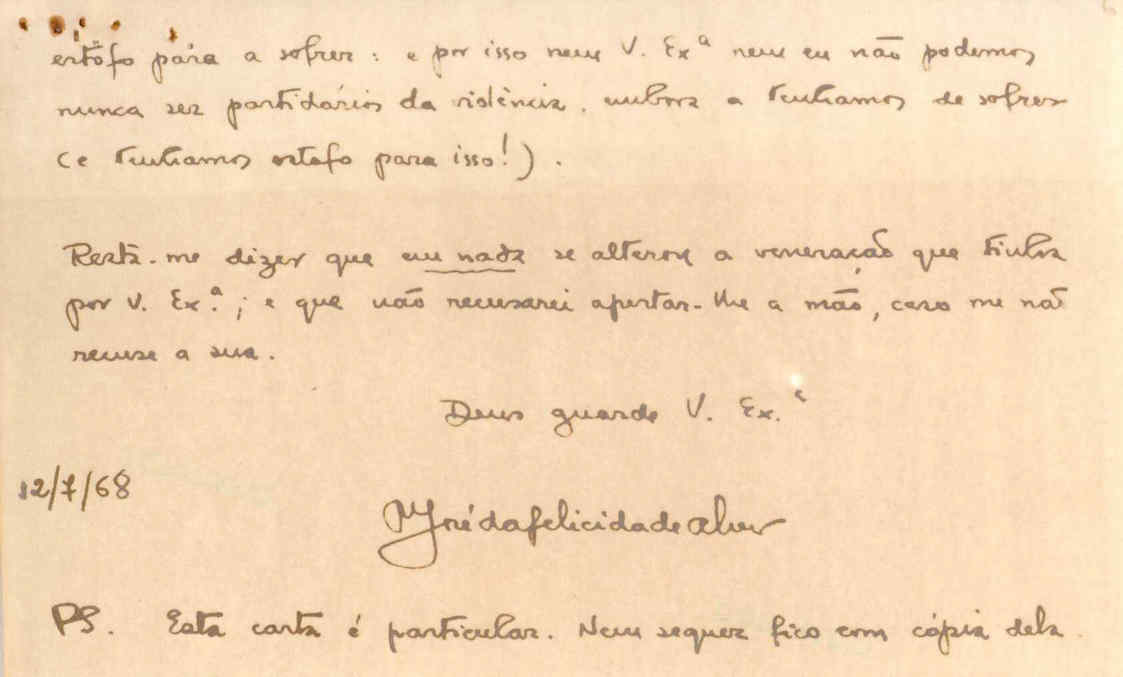 estôfo para a sofrer : e por isso nem V. Exª nem eu não podemos
nunca ser partidários da violência, embora a tenhamos de sofrer
(e tenhamos estofo para isso!).
Resta-me dizer que em nada se alterou a veneração que tinha
por V. Ex.ª ; e que não recusarei apertar-lhe a mão, caso me não
recuse a sua.
Deus guarde V. Ex.ª
12/7/68
José da felicidade alves
PS. Esta carta é particular. Nem sequer fico com cópia dela.